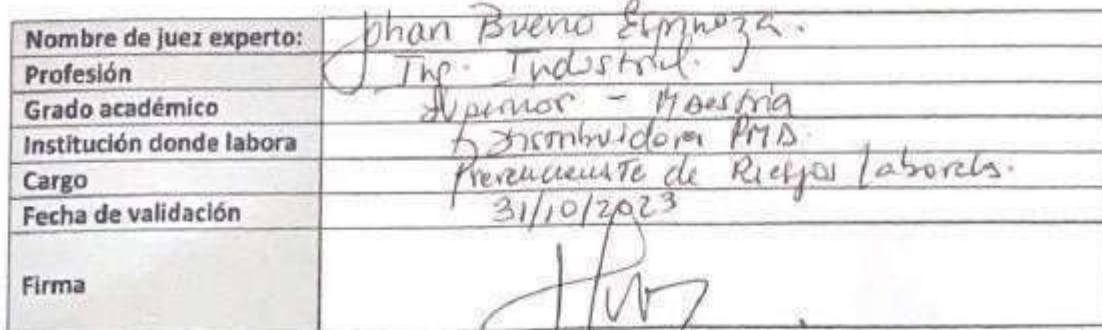 Nombre de juez experto: Johan Bueno Espinoza.
Profesión Ing. Industrial.
Grado académico Superior - Maestría
Institución donde labora Distribuidora PMD.
Cargo de Riesgos Laborales.
Fecha de validación 31/10/2023
Firma